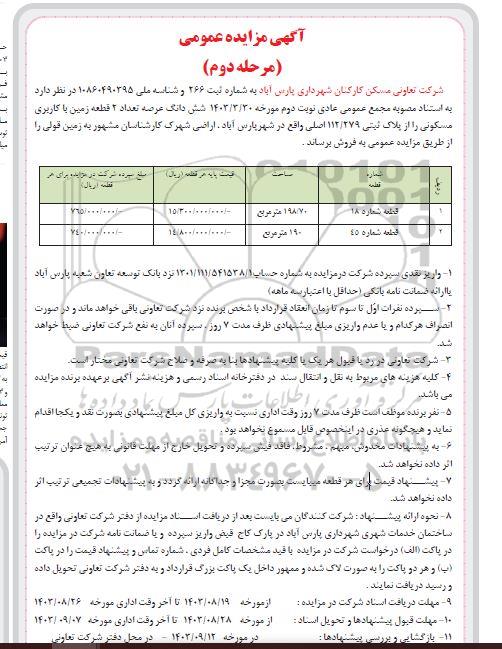 آگهی مزایده عمومی
(مرحله دوم)
شرکت تعاونی مسکن کارکنان شهرداری پارس آباد به شماره ثبت ۲۶۶ و شناسه ملی ۱۰۸۶۰۴۹۰۲۹۵ در نظر دارد
به استناد مصوبه مجمع عمومی عادی نوبت دوم مورخه ۱۴۰۳/۳/۳۰ شش دانگ عرصه تعداد ۲ قطعه زمین با کاربری
مسکونی را از پلاک ثبتی ۱۱۲/۲۷۹ اصلی واقع در شهر پارس آباد، اراضی شهرک کارشناسان مشهور به زمین قولی را
از طریق مزایده عمومی به فروش برساند.
ردیف شماره قطعه مساحت قیمت پایه هر قطعه (ریال) مبلغ سپرده شرکت در مزایده برای هر قطعه (ریال)
۱ قطعه شماره ۱۸ ۱۹۸/۷۰ مترمربع ۱۵/۳۰۰/۰۰۰/۰۰۰/- ۷۶۵/۰۰۰/۰۰۰/-
۲ قطعه شماره ۴۵ ۱۹۰ مترمربع ۱۴/۸۰۰/۰۰۰/۰۰۰/- ۷۴۰/۰۰۰/۰۰۰/-
۱- واریز نقدی سپرده شرکت درمزایده به شماره حساب ۱۲۰۱/۱۱۱/۵۴۱۵۳۸/۱ نزد بانک توسعه تعاون شعبه پارس آباد
یاارائه ضمانت نامه بانکی (حداقل با اعتبارسه ماهه)
۲- سپرده نفرات اوّل تا سوم تا زمان انعقاد قرارداد با شخص برنده نزد شرکت تعاونی باقی خواهد ماند و در صورت
انصراف هرکدام و یا عدم واریزی مبلغ پیشنهادی ظرف مدت ۷ روز، سپرده آنان به نفع شرکت تعاونی ضبط خواهد
شد.
۳- شرکت تعاونی در رد یا قبول هر یک یا کلیه پیشنهادها بنا به صرفه و صلاح شرکت تعاونی مختار است.
۴- کلیه هزینه های مربوط به نقل و انتقال سند در دفترخانه اسناد رسمی و هزینه نشر آگهی برعهده برنده مزایده
می باشد.
۵- نفر برنده موظف است ظرف مدت ۷ روز وقت اداری نسبت به واریزی کل مبلغ پیشنهادی بصورت نقد و یکجا اقدام
نماید و هیچگونه عذری در اینخصوص قابل مسموع نخواهد بود.
۶- به پیشنهادات مخدوش، مبهم، مشروط، فاقد فیش سپرده و تحویل خارج از مهلت قانونی به هیچ عنوان ترتیب
اثر داده نخواهد شد.
۷- پیشنهاد قیمت برای هر قطعه میبایست بصورت مجزا و جداگانه ارائه گردد و به پیشنهادات تجمیعی ترتیب اثر
داده نخواهد شد.
۸- نحوه ارائه پیشنهاد: شرکت کنندگان می بایست بعد از دریافت اسناد مزایده از دفتر شرکت تعاونی واقع در
ساختمان خدمات شهری شهرداری پارس آباد در پارک کاج فیش واریز سپرده و یا ضمانت نامه شرکت در مزایده را
در پاکت (الف) درخواست شرکت در مزایده با قید مشخصات کامل فردی، شماره تماس و پیشنهاد قیمت را در پاکت
(ب) و هر دو پاکت را به صورت لاک شده و ممهور داخل یک پاکت بزرگ قرارداد و به دفتر شرکت تعاونی تحویل داده
و رسید دریافت نمایند.
۹- مهلت دریافت اسناد شرکت در مزایده: ازمورخه ۱۴۰۳/۰۸/۱۹ تا آخر وقت اداری مورخه ۱۴۰۳/۰۸/۲۶
۱۰- مهلت قبول پیشنهادها و تحویل اسناد: از مورخه ۱۴۰۳/۰۸/۲۸ تا آخر وقت اداری مورخه ۱۴۰۳/۰۹/۰۷
۱۱- بازگشایی و بررسی پیشنهادها: در مورخه ۱۴۰۳/۰۹/۱۲ - در محل دفتر شرکت تعاونی